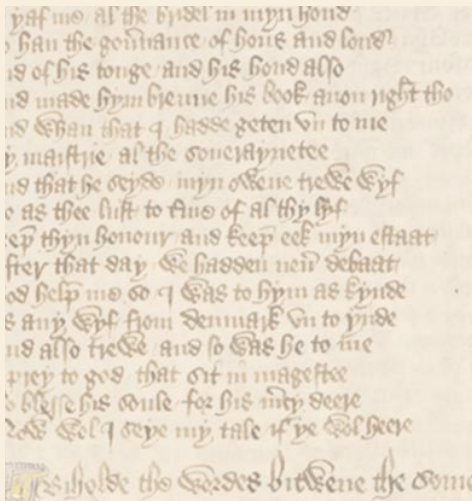 yaf me al the bridel in myn hond
han the gou̅nance of hous and lond
nd of his tonge and his hond also
nd made hym brenne his book anon right tho
nd whan that I hadde geten vn to me
y maistrie al the soueraynetee
nd that he seyde myn owene trewe wyf
o as thee lust to time of al thy lyf
eep thyn honour and keep eek myn estaat
fter that day we hadden neu̅ debaat
od help me so I was to hym as kynde
s any wyf from denmark vn to ynde
nd also trewe and so was he to me
prey to god that sit in magestee
blesse his soule for his m̅cy deere
ow wol I seye my tale if ye wol heere
biholde the wordes bitwene the Som